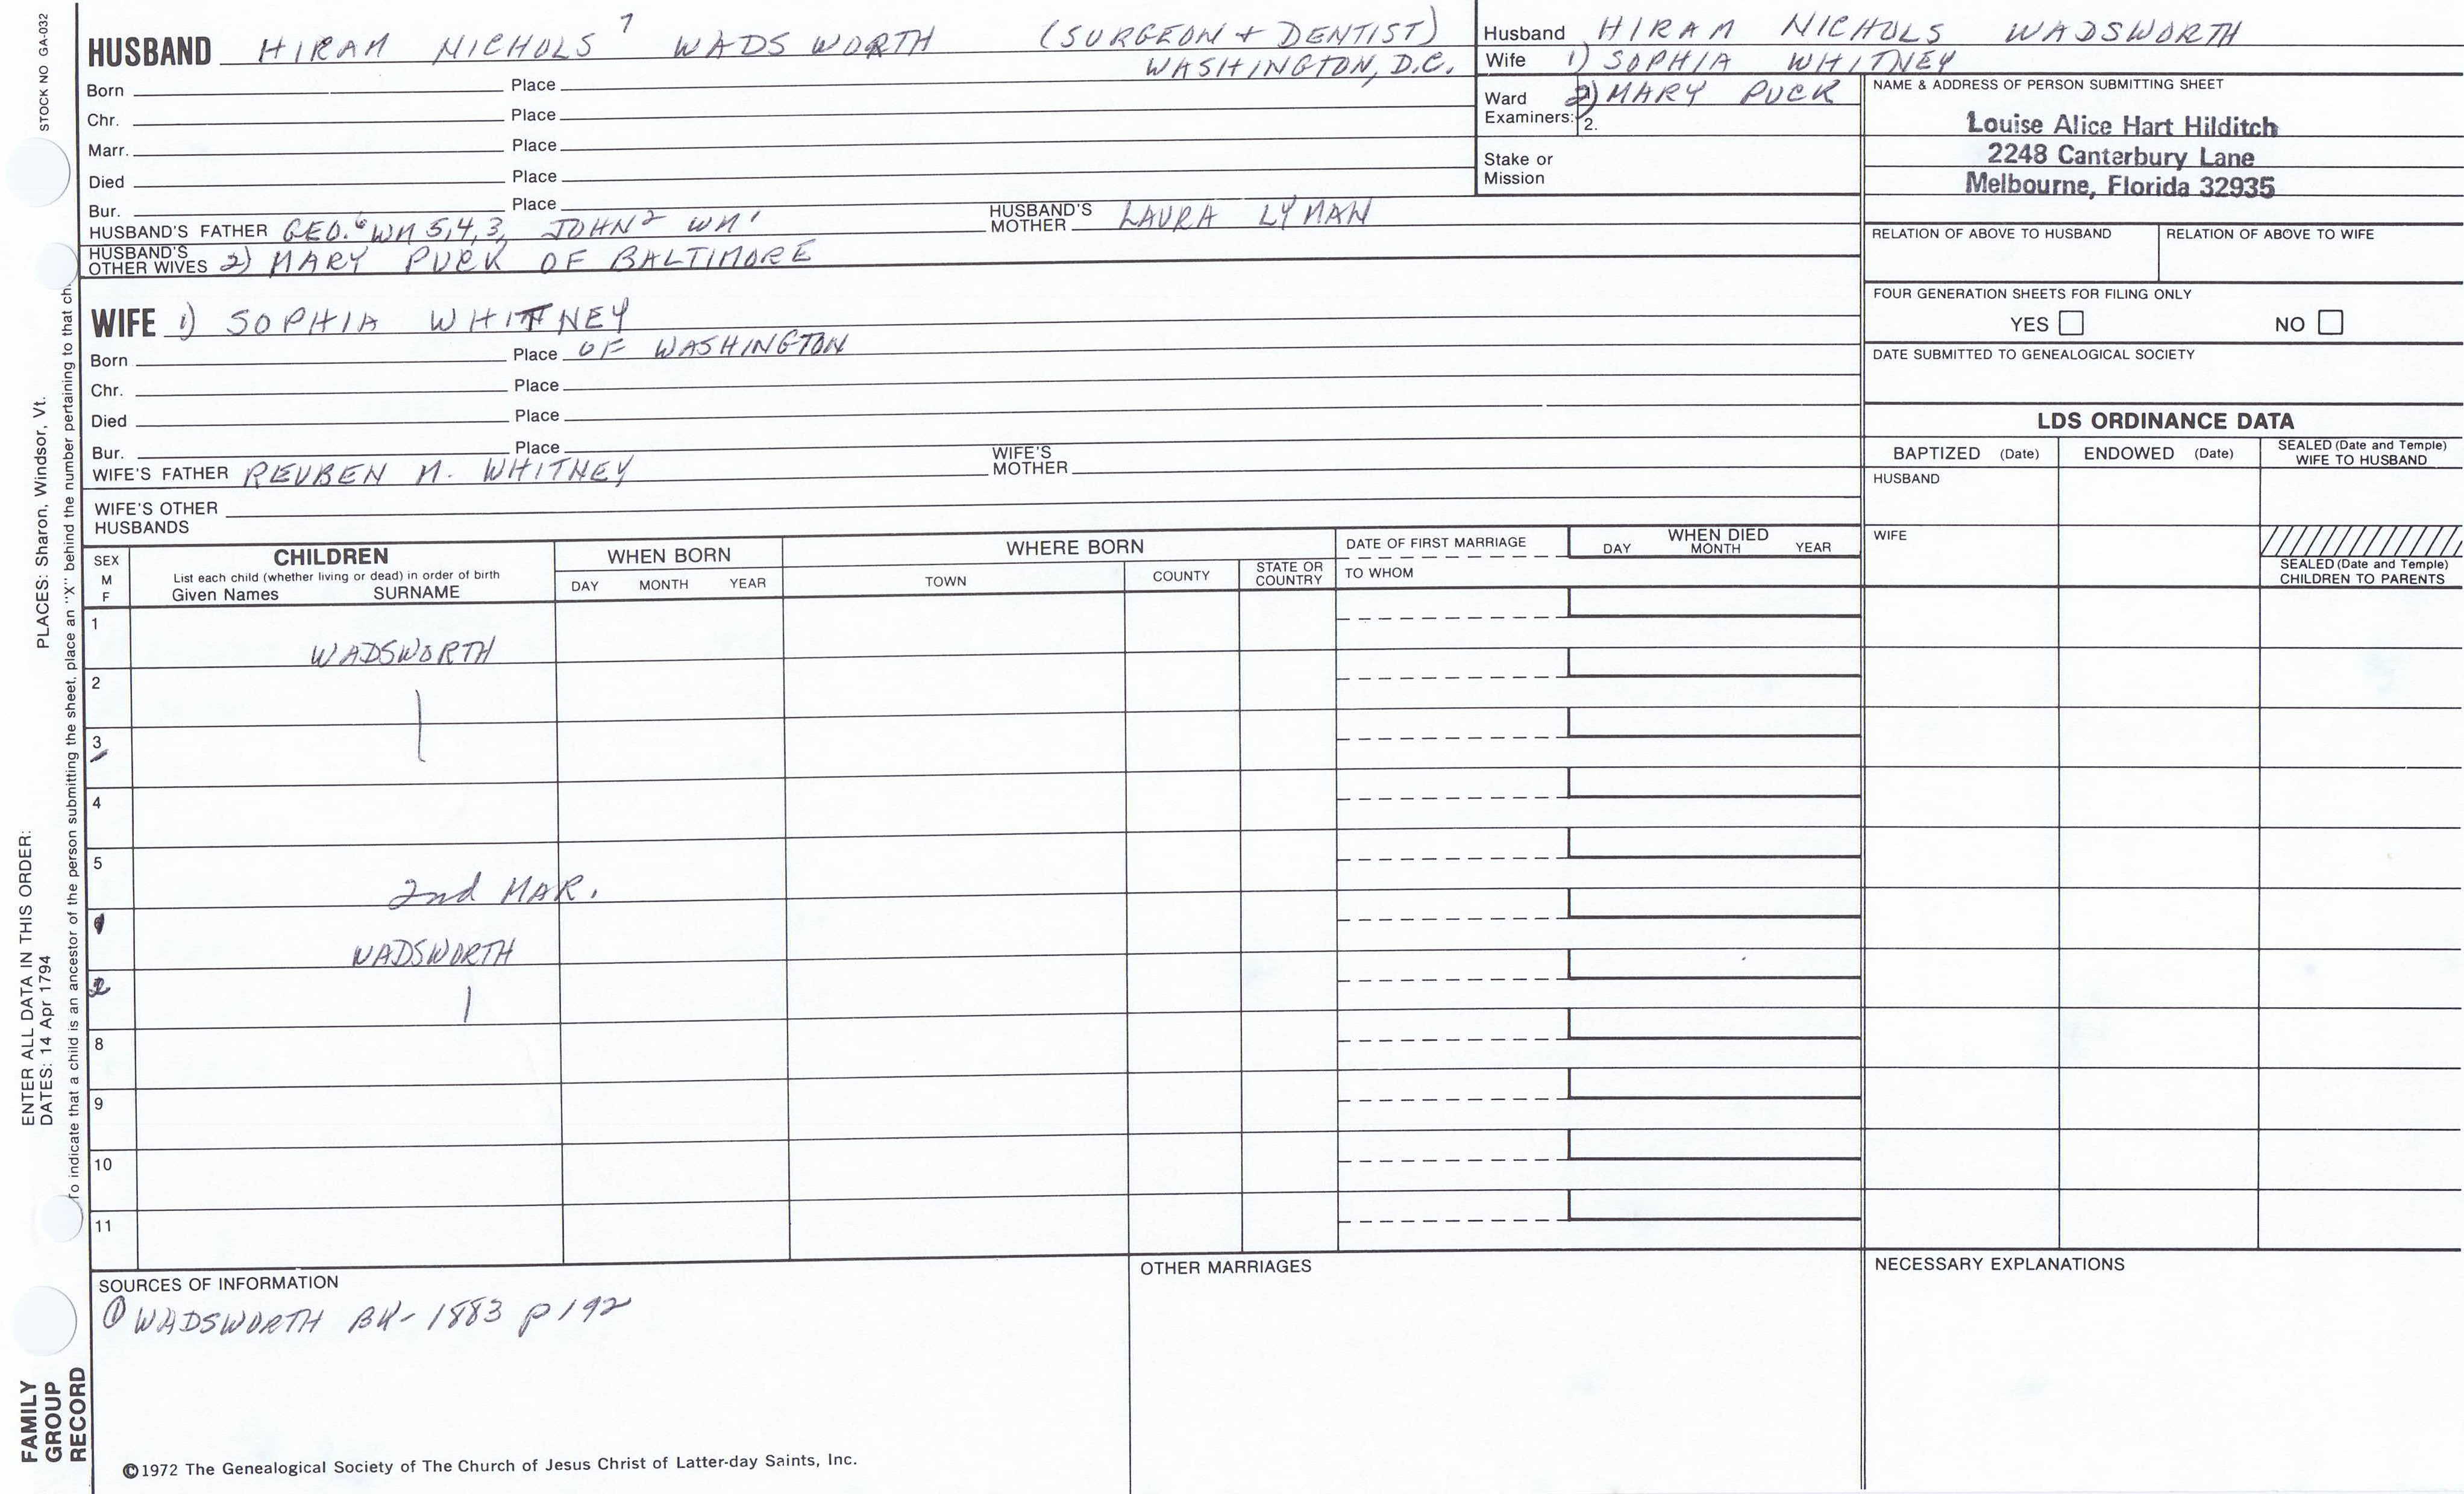 STOCK NO GA-032
HUSBAND HIRAM NICHOLS 7 WADSWORTH (SURGEON + DENTIST)
WASHINGTON, D.C.
Born Place
Chr. Place
Marr. Place
Died Place
Bur. Place
HUSBAND'S FATHER GEO.6 WM 5,4,3, JOHN2 WM1 HUSBAND'S MOTHER LAURA LYMAN
HUSBAND'S OTHER WIVES 2) MARY PUCK OF BALTIMORE
WIFE 1) SOPHIA WHITNEY
Born Place OF WASHINGTON
Chr. Place
Died Place
Bur. Place
WIFE'S FATHER REUBEN M. WHITNEY WIFE'S MOTHER
WIFE'S OTHER HUSBANDS
Husband HIRAM NICHOLS WADSWORTH
Wife 1) SOPHIA WHITNEY
Ward 2) MARY PUCK
Examiners: 2.
Stake or Mission
NAME & ADDRESS OF PERSON SUBMITTING SHEET
Louise Alice Hart Hilditch
2248 Canterbury Lane
Melbourne, Florida 32935
RELATION OF ABOVE TO HUSBAND RELATION OF ABOVE TO WIFE
FOUR GENERATION SHEETS FOR FILING ONLY
YES NO
DATE SUBMITTED TO GENEALOGICAL SOCIETY
LDS ORDINANCE DATA
BAPTIZED (Date) ENDOWED (Date) SEALED (Date and Temple) WIFE TO HUSBAND
HUSBAND
WIFE
SEALED (Date and Temple) CHILDREN TO PARENTS
SEX M F
CHILDREN
List each child (whether living or dead) in order of birth
Given Names SURNAME
WHEN BORN
DAY MONTH YEAR
WHERE BORN
TOWN COUNTY STATE OR COUNTRY
DATE OF FIRST MARRIAGE
TO WHOM
WHEN DIED
DAY MONTH YEAR
1
WADSWORTH
2
3
4
5
2nd MAR.
1
WADSWORTH
2
8
9
10
11
SOURCES OF INFORMATION
① WADSWORTH BK- 1883 p 192
OTHER MARRIAGES
NECESSARY EXPLANATIONS
©1972 The Genealogical Society of The Church of Jesus Christ of Latter-day Saints, Inc.
PLACES: Sharon, Windsor, Vt.
ENTER ALL DATA IN THIS ORDER:
DATES: 14 Apr 1794
To indicate that a child is an ancestor of the person submitting the sheet, place an "X" behind the number pertaining to that ch
FAMILY
GROUP
RECORD